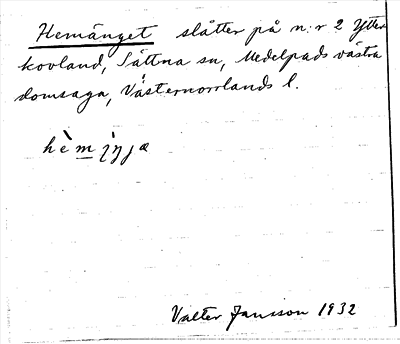 Hemänget slåtter på n:r 2 Ytter
kovland, Sättna sn, Medelpads västra
domsaga, Västernorrlands l.
Valter Jansson 1932